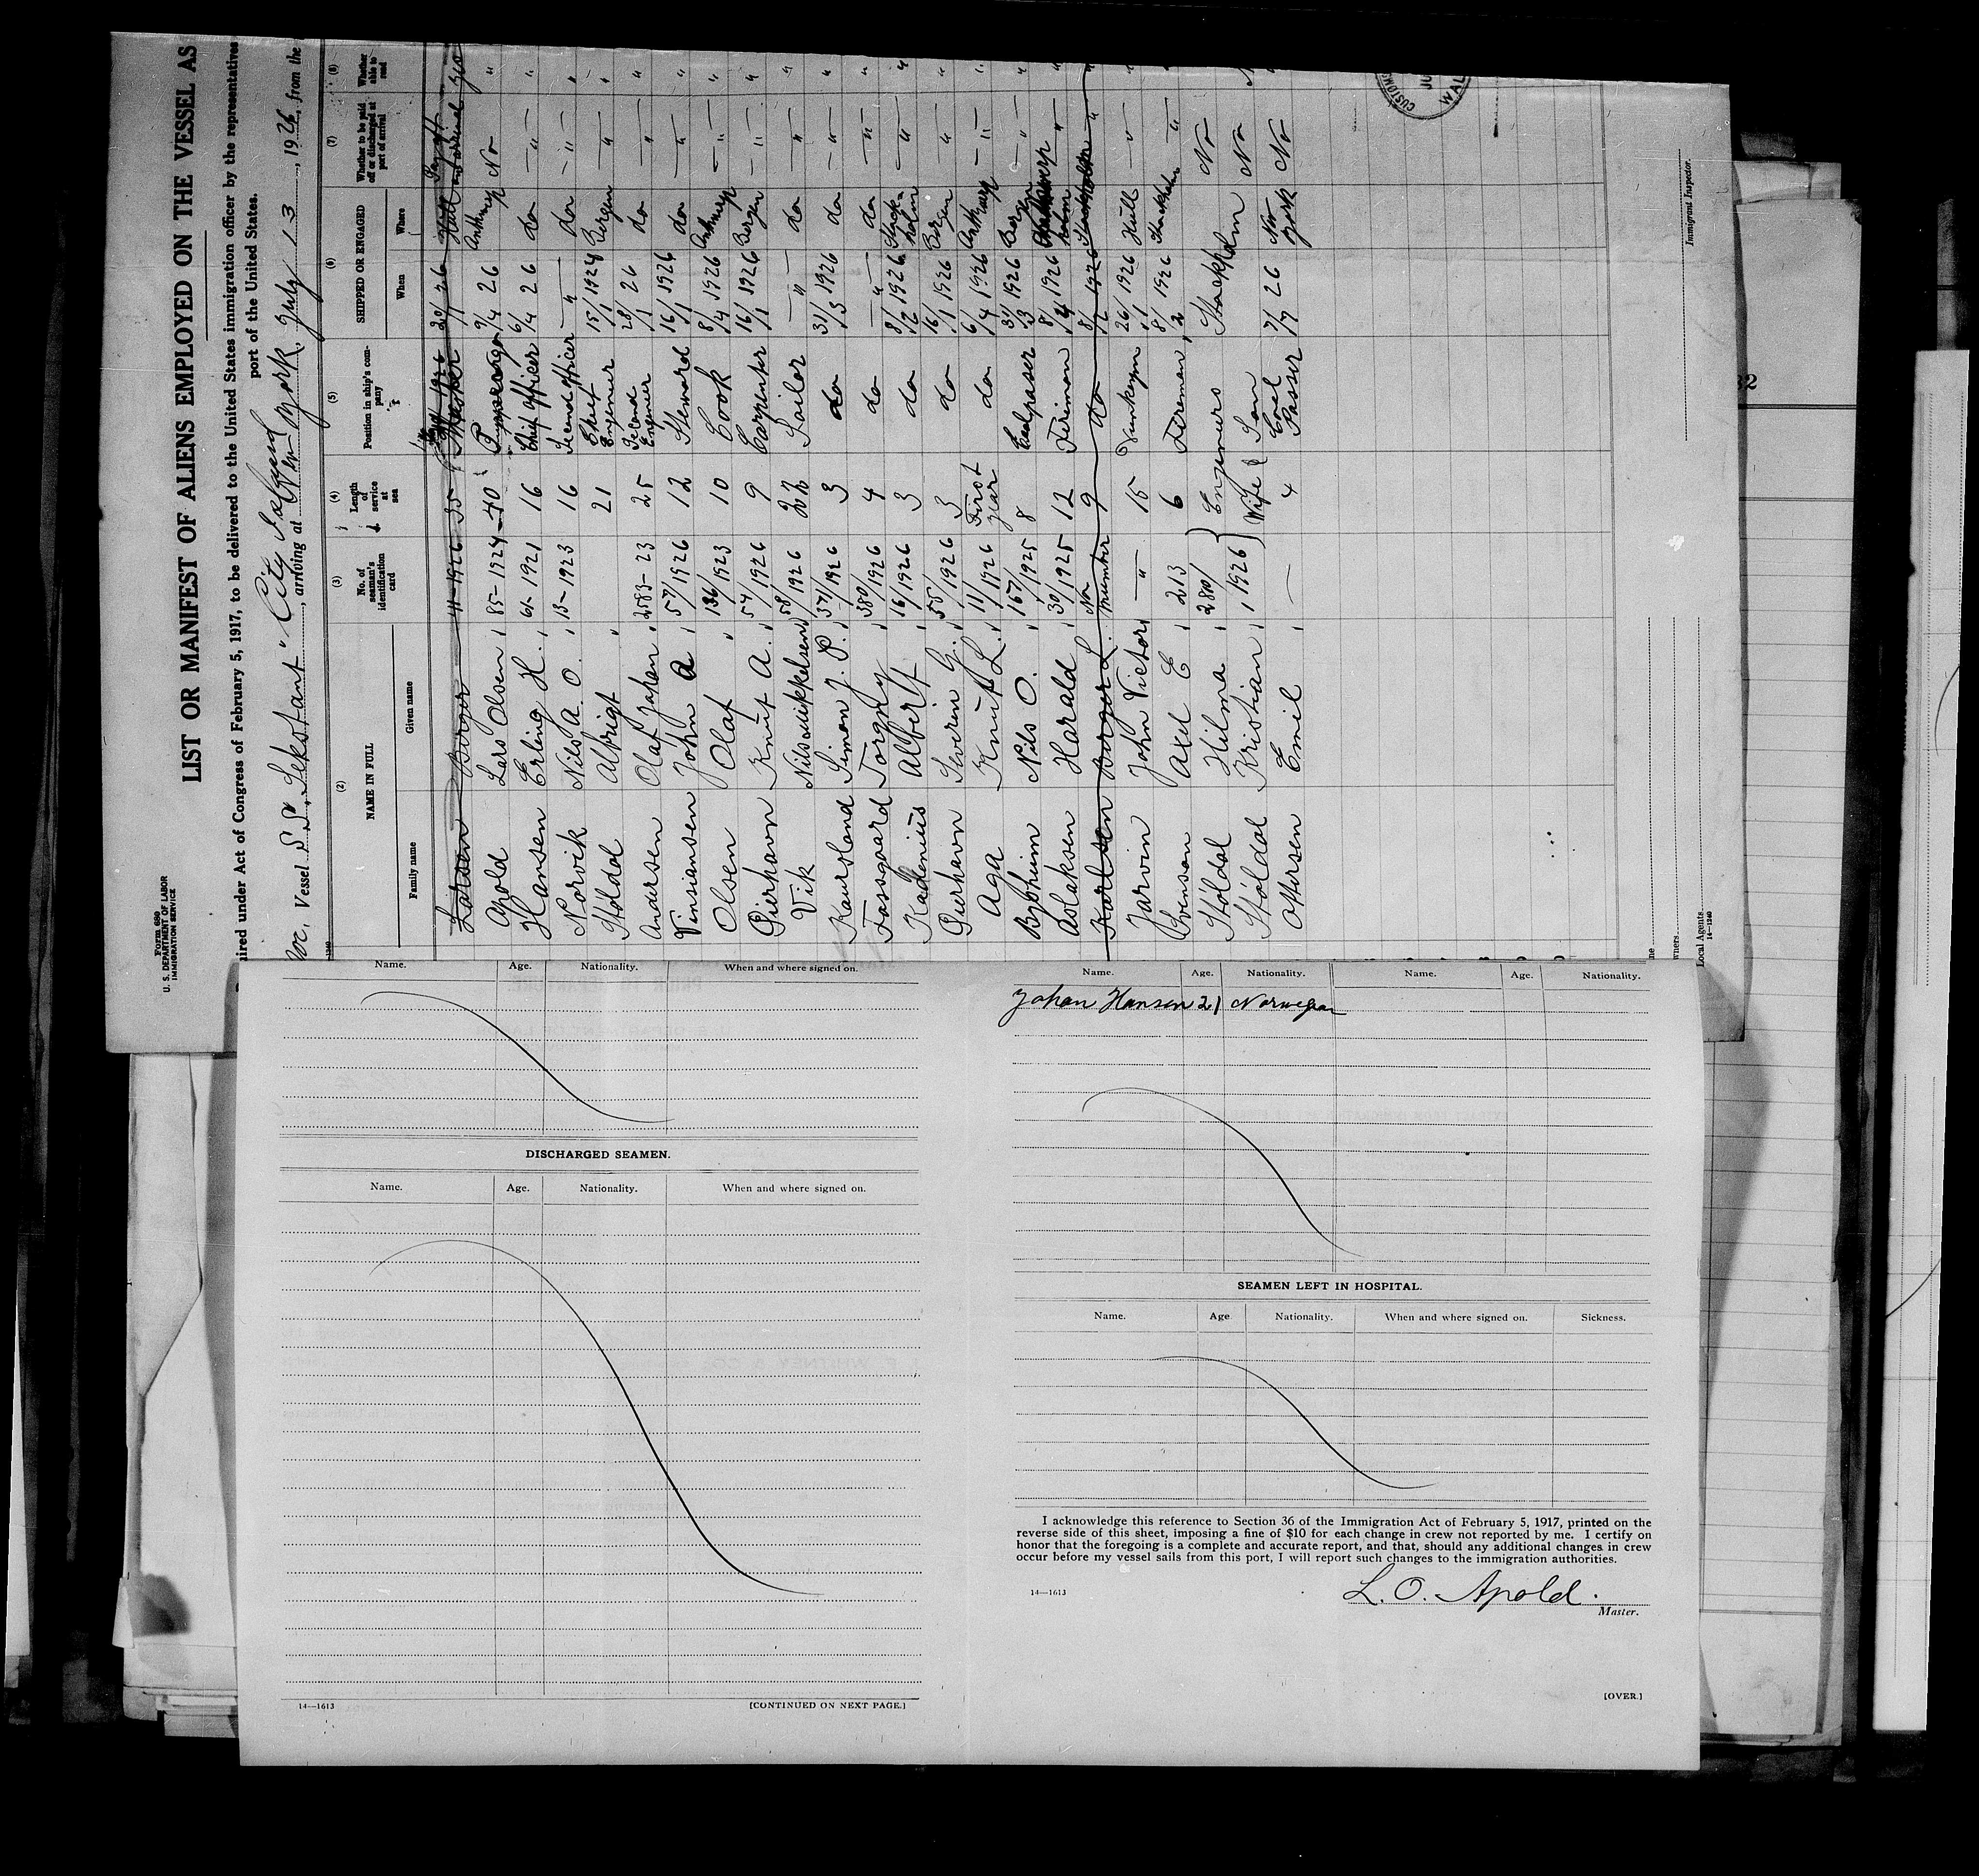 Form 689
U. S. DEPARTMENT OF LABOR
IMMIGRATION SERVICE
LIST OR MANIFEST OF ALIENS EMPLOYED ON THE VESSEL AS
uired under Act of Congress of February 5, 1917, to be delivered to the United States immigration officer by the representatives
port of the United States.
Vessel S.S. "Sekstant", arriving at New York, July 13, 1926, from the
(2) (3) (4) (5) (6) (7) (8)
NAME IN FULL No. of seaman's identification card Length of service at sea Position in ship's company SHIPPED OR ENGAGED Whether to be paid off or discharged at port of arrival Whether able to read
Family name Given name When Where
Larsen Birger 1926 35 Master 26 Hull
Apold Lars Olsen 85-1924 40 9/4 26 Antwerp No "
Hansen Erling H. 61-1921 16 Chief Officer 6/4 26 do " "
Norvik Nils A. O. 13-1923 16 Second Officer " do " "
Stöldal Albrigt 21 Chief Engener 15/1 1924 Bergen " "
Andersen Olaf Johan 2583-23 25 Second Engener 28/1 26 do " "
Vinsiansen John A 57/1926 12 Steward 16/1 1926 do " "
Olsen Olaf 136/1923 10 Cook 8/4 1926 Antwerp " "
Gierhavn Knut A. 54/1926 9 Carpenter 16/1 1926 Bergen " "
Vik Nils Mikkelsen 58/1926 22 Sailor " do " "
Kaursland Simon J. P. 37/1926 3 do 31/3 1926 do " "
Fossgaard Torgny 380/1926 4 do " do " "
Kadenius Albert 16/1926 3 do 8/2 1926 Stockholm " "
Gierhavn Severin G. 55/1926 3 do 16/1 1926 Bergen " "
Aga Knut L. 11/1926 First year do 6/4 1926 Antwerp " "
Nils O. 167/1925 8 31/3 1926 Bergen " "
Aslaksen Harald 30/1925 12 Fireman 8/4 1926 " "
Karlsen Birger L. No number 9 do 1926 Stockholm " "
Jarvin John Victor " 15 26/1 1926 Hull " "
Svenson Axel E 213 6 Fireman 8/2 1926 Stockholm "
Stöldal Hilma 280/1926 Engeneers Wife & Son Stockholm No
Stöldal Kristian No
Ottersen Emil — 4 Coal Passer 7/7 26 New York No "
CUSTOMS
JU
WAL
Immigrant Inspector.
Local Agents
14—1240
Name. Age. Nationality. When and where signed on.
DISCHARGED SEAMEN.
Name. Age. Nationality. When and where signed on.
14—1613 [CONTINUED ON NEXT PAGE.]
Name. Age. Nationality. Name. Age. Nationality.
Johan Hansen 21 Norwegian
SEAMEN LEFT IN HOSPITAL.
Name. Age Nationality. When and where signed on. Sickness.
I acknowledge this reference to Section 36 of the Immigration Act of February 5, 1917, printed on the
reverse side of this sheet, imposing a fine of $10 for each change in crew not reported by me. I certify on
honor that the foregoing is a complete and accurate report, and that, should any additional changes in crew
occur before my vessel sails from this port, I will report such changes to the immigration authorities.
14—1613
L. O. Apold.
Master.
[OVER.]